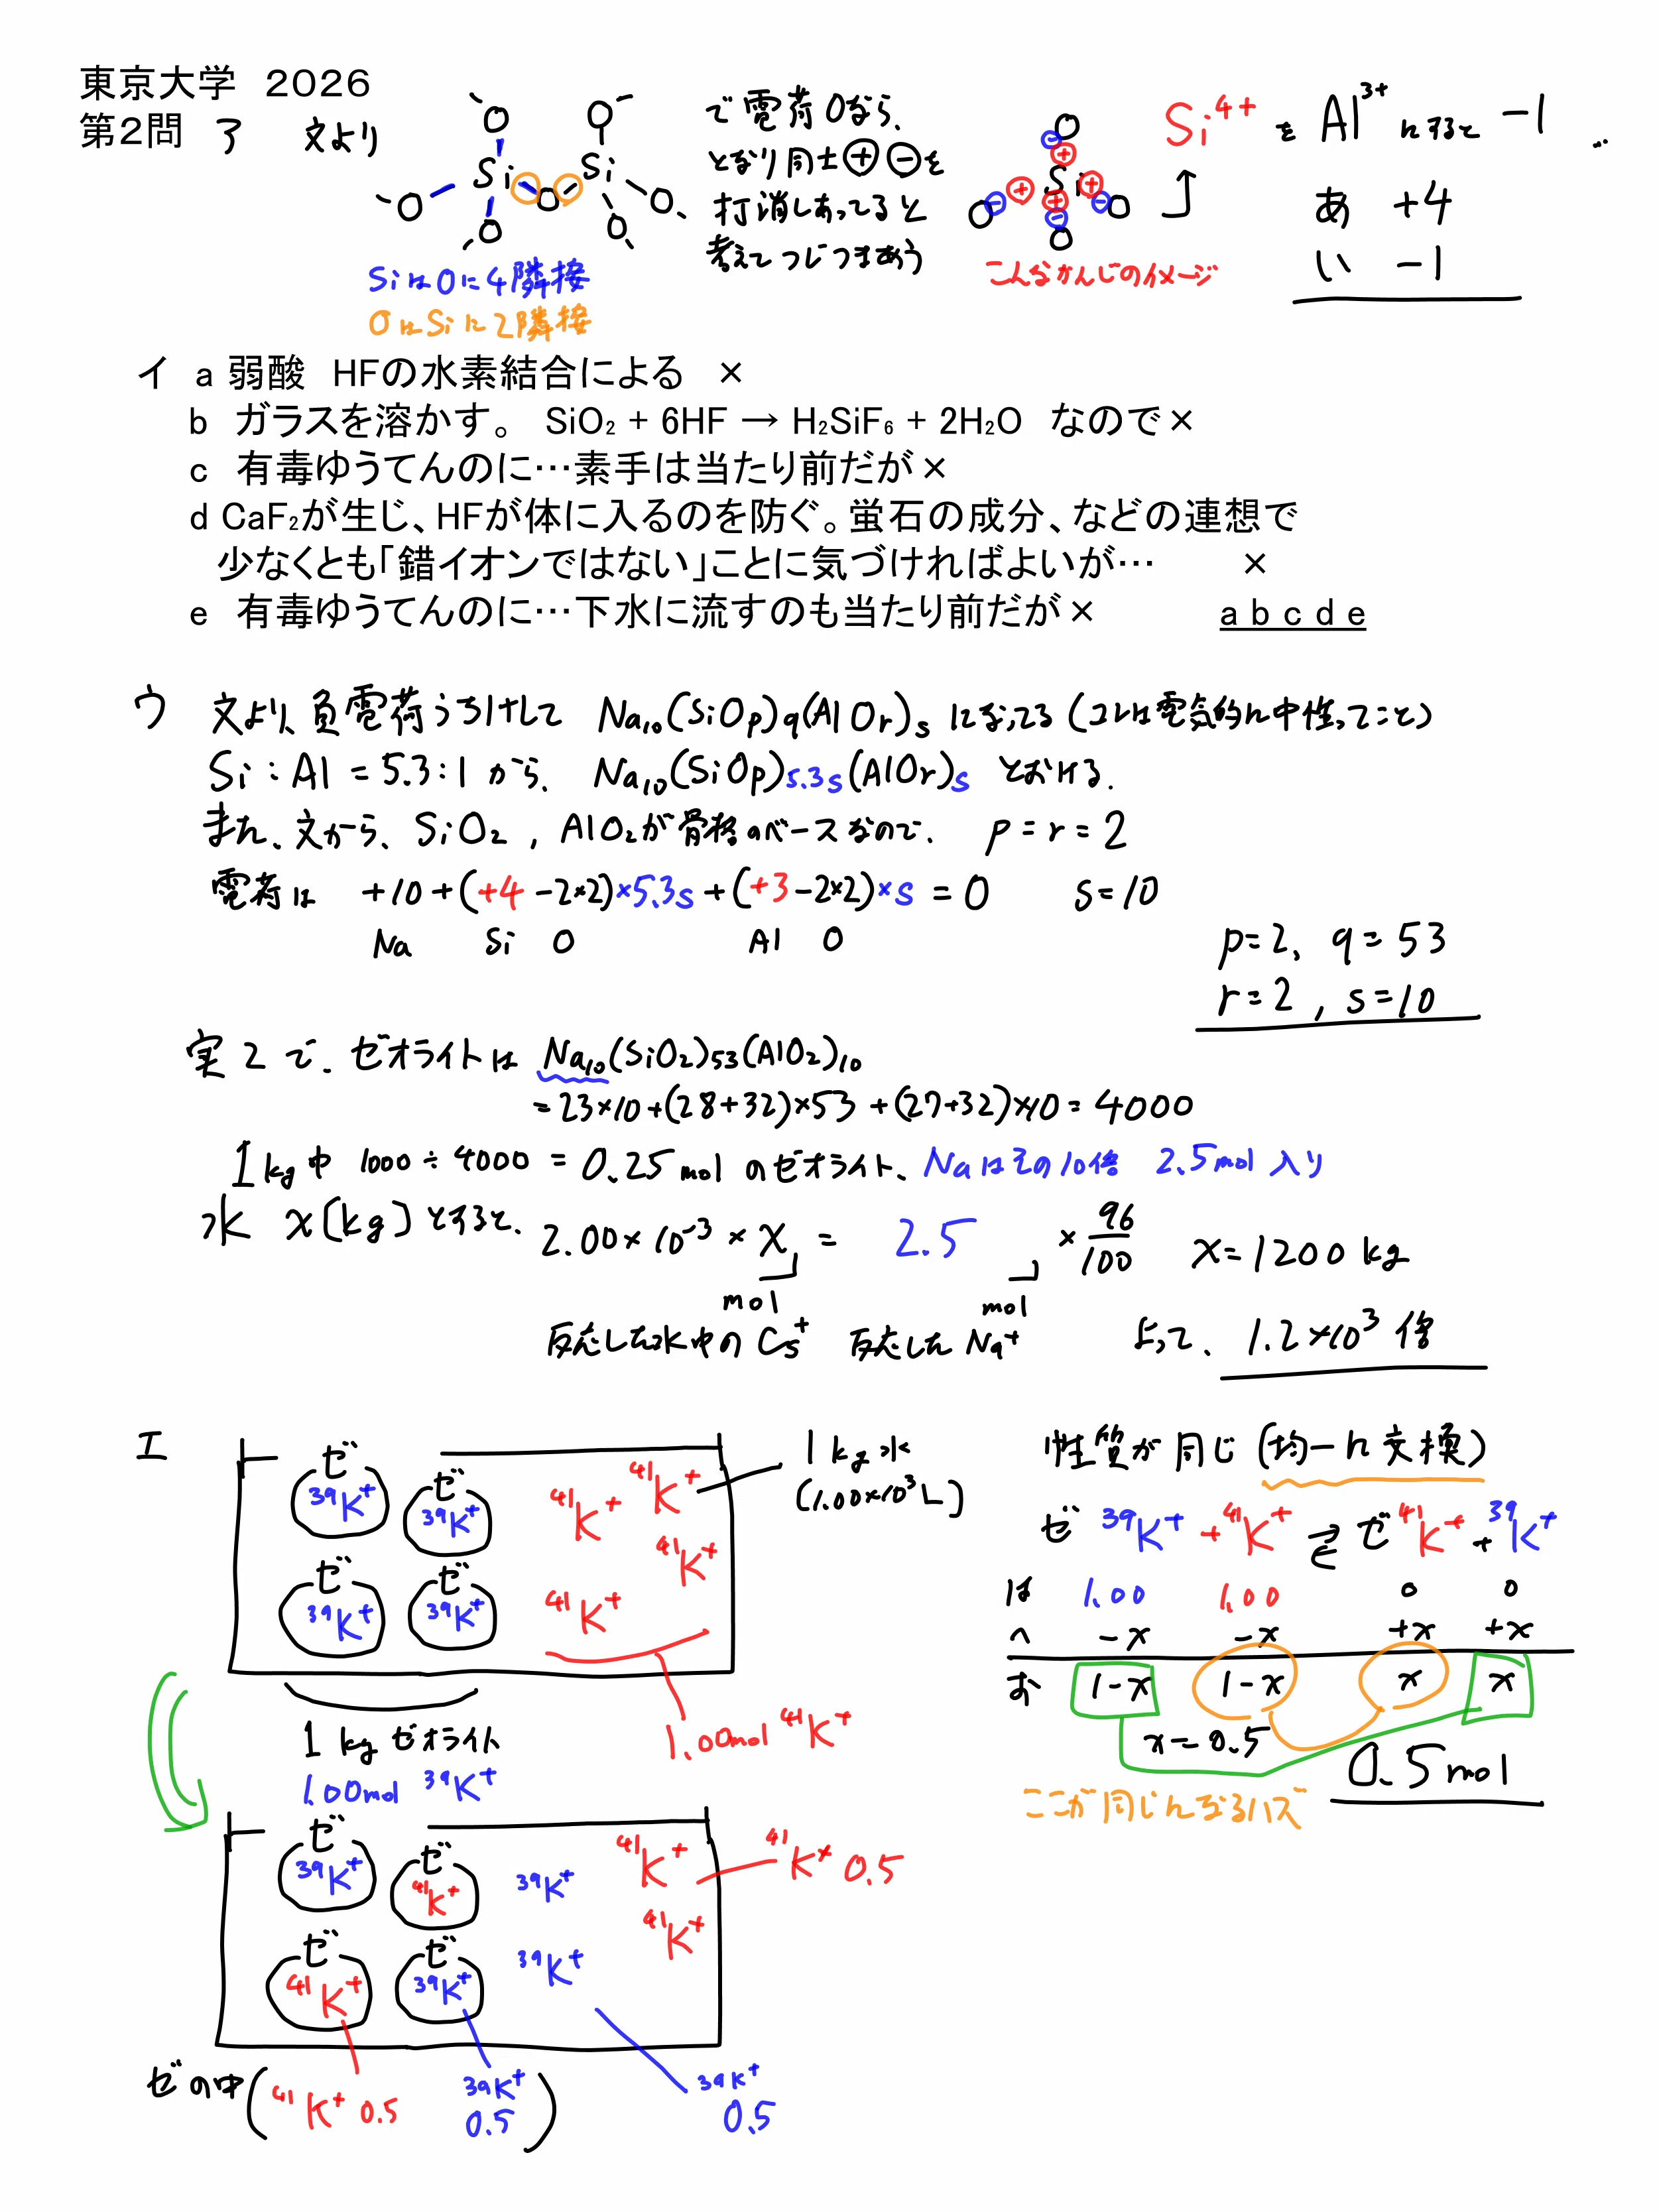 東京大学　２０２６
第２問 ア 文より
Si O O O O Si O⁻ O O
SiはOに4隣接
OはSiに2隣接
で電荷0なら、
となり同士⊕⊖を
打消しあってると
考えてつじつまあう
O Si O O O
こんなかんじのイメージ
Si⁴⁺を Al³⁺にすると -1
あ +4
い -1
イ　a 弱酸　HFの水素結合による　×
b　ガラスを溶かす。　SiO₂ + 6HF → H₂SiF₆ + 2H₂O　なので×
c　有毒ゆうてんのに…素手は当たり前だが×
d CaF₂が生じ、HFが体に入るのを防ぐ。蛍石の成分、などの連想で
少なくとも「錯イオンではない」ことに気づければよいが…　×
e　有毒ゆうてんのに…下水に流すのも当たり前だが×　a b c d e
ウ 文より、負電荷うちけして Na₁₀(SiOp)q(AlOr)s になってる(コレは電気的に中性ってこと)
Si : Al = 5.3 : 1 から、 Na₁₀(SiOp)5.3s(AlOr)s とおける.
また、文から、SiO₂ , AlO₂が骨格のベースなので、 p = r = 2
電荷は +10 + (+4 -2×2)×5.3s + (+3 -2×2)×s = 0 s = 10
Na Si O Al O
p=2, q=53
r=2 , s=10
実2で、ゼオライトは Na₁₀(SiO₂)₅₃(AlO₂)₁₀
= 23×10+(28+32)×53 +(27+32)×10 = 4000
1kg中 1000÷4000 = 0.25mol のゼオライト、Naはその10倍 2.5mol 入り
水 x[kg]とすると、 2.00×10⁻³ × x = 2.5 × 96/100 x=1200kg
mol mol
反応した水中のCs⁺ 反応したNa⁺ よって、1.2×10³ 倍
エ
ゼ ³⁹K⁺ ゼ ³⁹K⁺ ⁴¹K⁺ ⁴¹K⁺
ゼ ³⁹K⁺ ゼ ³⁹K⁺ ⁴¹K⁺ ⁴¹K⁺
1kg水
(1.00×10³L)
1kgゼオライト
1.00mol ³⁹K⁺
1.00mol ⁴¹K⁺
性質が同じ (均一に交換)
ゼ ³⁹K⁺ + ⁴¹K⁺ ⇄ ゼ ⁴¹K⁺ + ³⁹K⁺
は 1.00 1.00 0 0
へ -x -x +x +x
お 1-x 1-x x x
x=0.5
0.5mol
ここが同じになるハズ
ゼ ³⁹K⁺ ゼ ⁴¹K⁺ ³⁹K⁺ ⁴¹K⁺ ⁴¹K⁺ 0.5
ゼ ⁴¹K⁺ ゼ ³⁹K⁺ ³⁹K⁺ ⁴¹K⁺
ゼの中( ⁴¹K⁺ 0.5 ³⁹K⁺ 0.5 ) ³⁹K⁺ 0.5